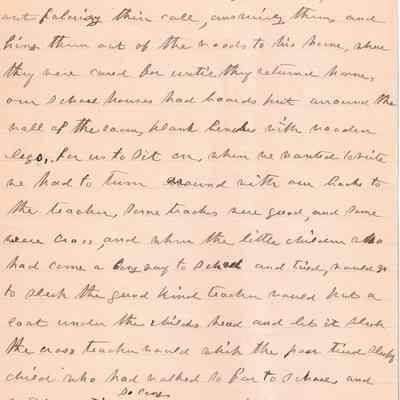 out following their call, answering them, and
bring them out of the woods to his home, where
they were cared for until they returned home,
our School houses had boards put around the
wall of the room, plank benches with wooden
legs, for us to sit on, when we wanted to write
we had to turn around with our backs to
the teacher, some teachers were good, and some
were cross, and when the little children who
had come a long way to School and tried, would go
to sleep the good kind teacher would put a
coat under the childs head and let it sleep
the cross teacher would whip the poor tired sleepy
child who had walked so far to School and
so cross